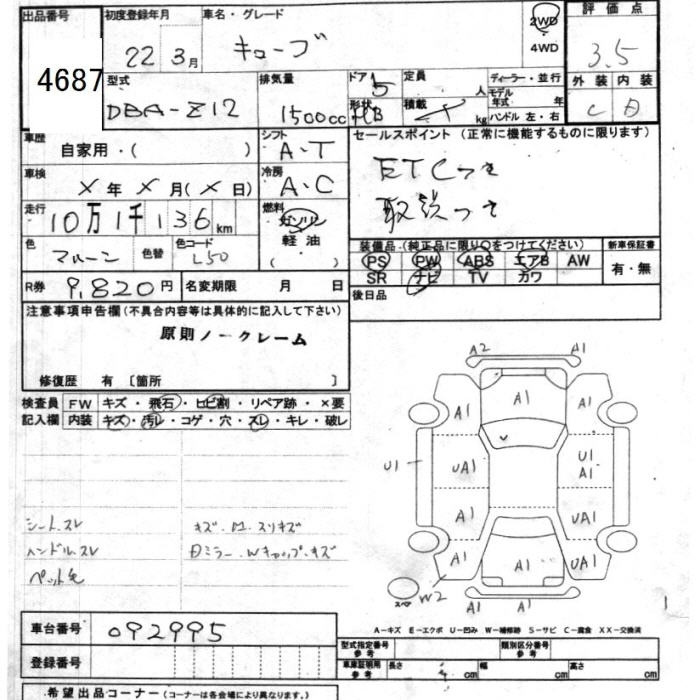 出品番号 初度登録年月 車名・グレード 2WD 評価点
4687 22 3月 キューブ 4WD 3.5
型式 排気量 ドア 定員 ディーラー・並行 外装 内装
DBA-Z12 1500cc 5 人 モデル年式 年
形状 積載 kg ハンドル 左・右 C
車歴 シフト セールスポイント (正常に機能するものに限ります)
自家用・( ) A・T ETCつき
車検 冷房
X年 X月(X日) A・C 取説つき
走行 燃料
10万1千136km ガソリン
色 色替 色コード 軽油 装備品 (純正品に限り○をつけてください) 新車保証書
マルーン L50 ( ) PS PW ABS エアB AW 有・無
SR ナビ TV カワ
R券 9,820円 名変期限 月 日 後日品
注意事項申告欄(不具合内容等は具体的に記入して下さい)
原則ノークレーム
修復歴 有 〔箇所 〕
検査員 FW キズ・飛石・ヒビ割・リペア跡・×要
記入欄 内装 キズ・汚レ・コゲ・穴・スレ・キレ・破レ
A2 A1
A1 A1 A1
U1 UA1 U1
A1
A1 UA1
A1 A1 UA1
W2 A1 A1
スペア
シートスレ キズ・凹・スリキズ
ハンドルスレ Bミラー・Wキャップ・キズ
A-キズ E-エクボ U-凹み W-補修跡 S-サビ C-腐食 XX-交換済
車台番号 092995
登録番号
型式指定番号 参考 類別区分番号 参考
車庫証明用 参考 長さ cm 幅 cm 高さ cm
希望出品コーナー(コーナーは各会場により異なります。)